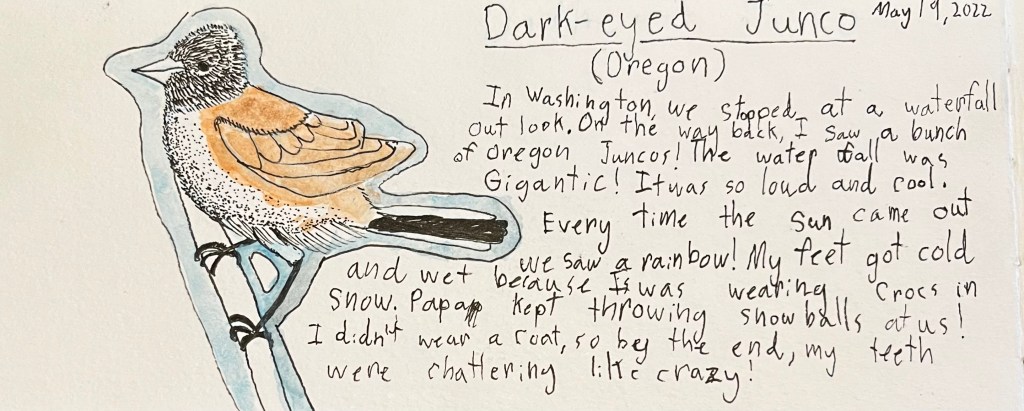 Dark-eyed Junco May 19, 2022
(Oregon)
In Washington, we stopped at a waterfall
out look. On the way back, I saw a bunch
of Oregon Juncos! The water fall was
Gigantic! It was so loud and cool.
Every time the sun came out
we saw a rainbow! My feet got cold
and wet because Is was wearing Crocs in
snow. Papa kept throwing snow balls at us!
I didn't wear a coat, so by the end, my teeth
were chattering like crazy!